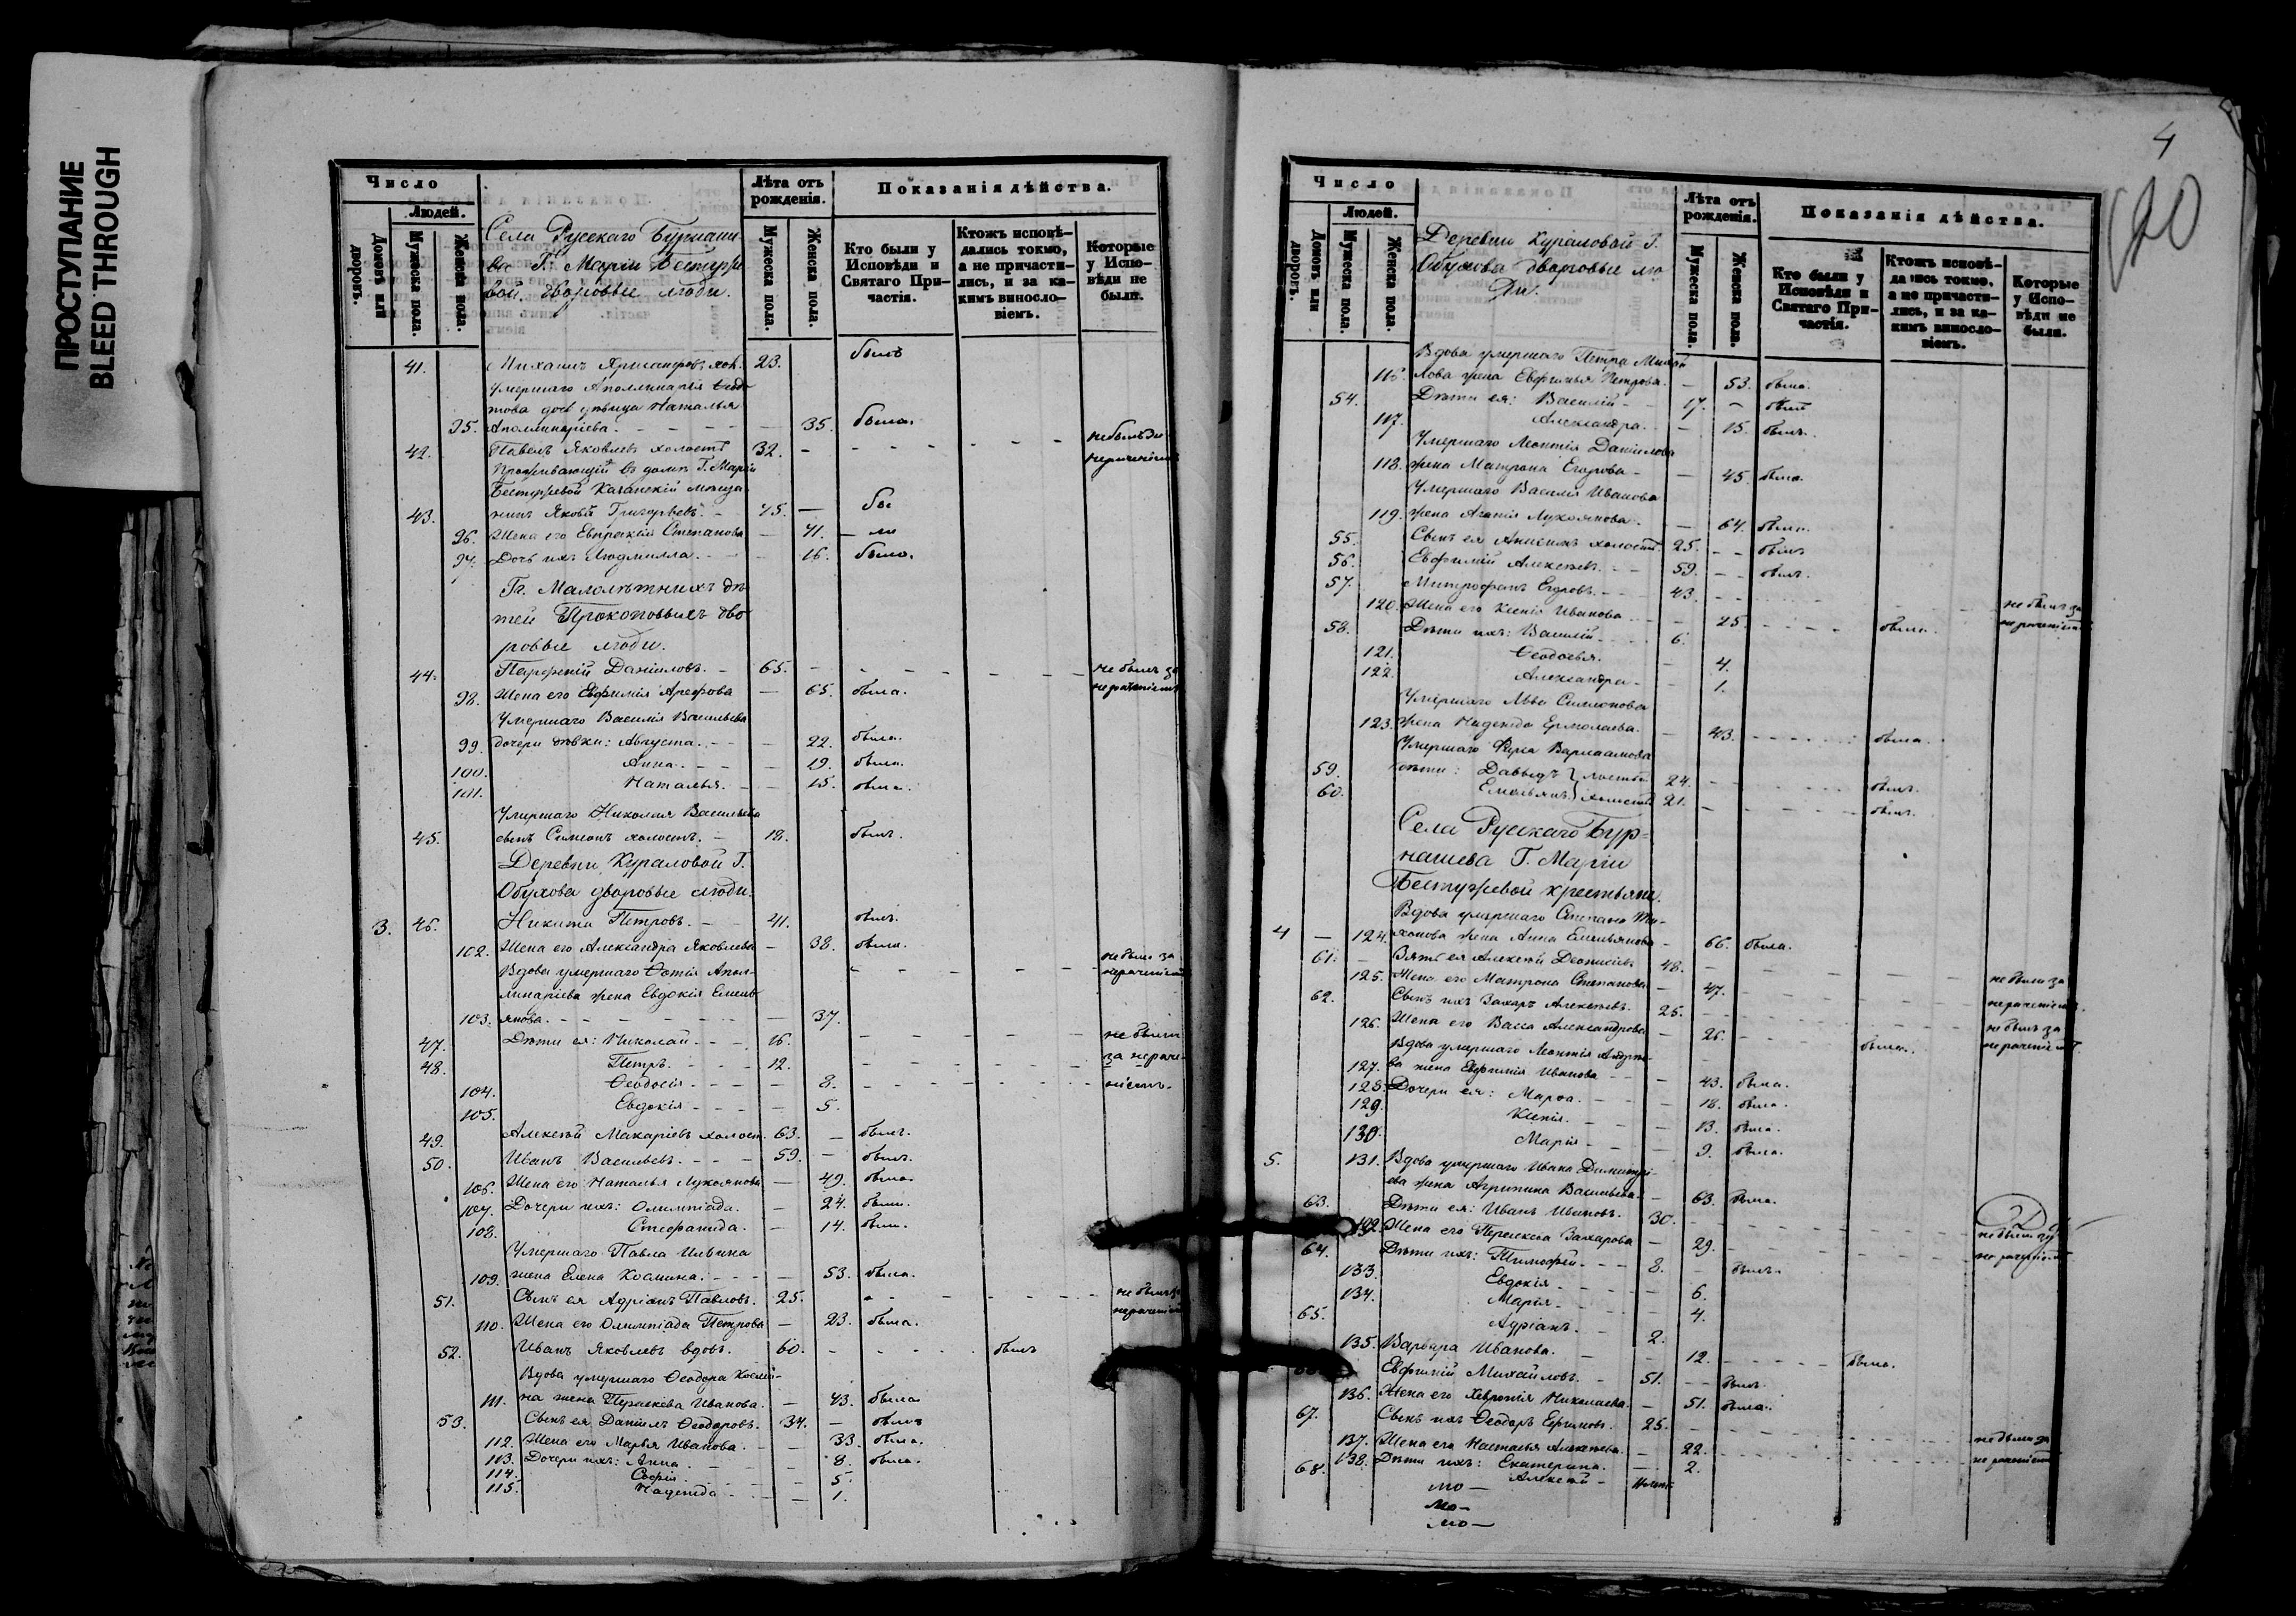 ПРОСТУПАНИЕ
BLEED THROUGH
Число
Людей.
Домовъ или дворовъ.
Мужеска пола.
Женска пола.
Села Русскаго Бурнаше
ва Г. Маріи Бестуже
вой дворовые люди.
Лѣта отъ рожденія.
Мужеска пола.
Женска пола.
Показанія дѣйства.
Кто были у Исповѣди и Святаго Причастія.
Ктожъ исповѣдались токмо, а не причастились, и за какимъ винословіемъ.
Которые у Исповѣди не были.
41. 23. былъ
умершаго Аполлинарія
дочь дѣвица Наталья
95. Аполлинаріева 35. была.
42. Павелъ Яковлевъ холостъ 32.
Проживающій въ домѣ Г. Маріи
Бестужевой Казанскій мѣща
43. нинъ Яковъ Григорьевъ. 75. — бы
96. Жена его Евпраксія Степанова — 71. — ли
97. Дочь ихъ Людмилла. 16. была.
Гг. Малолѣтнихъ дѣ
тей Прокоповыхъ дво
ровые люди.
44. Парфеній Даніиловъ. 65. не былъ за
98. Жена его Евфимія Арефова — 65. была. нераченіемъ
Умершаго Василія Васильева
99. дочери дѣвки: Августа. 22. была.
100. Анна. 19. была.
101. Наталья. 15. была.
Умершаго Николая Васильева
45. сынъ Симеонъ холостъ. 18. былъ.
Деревни Кураловой Г.
Обухова дворовые люди.
3. 46. Никита Петровъ. 41. былъ.
102. Жена его Александра Яковлева — 38. была.
Вдова умершаго Фотія Апол-
линаріева жена Евдокія Емель
103. янова. 37.
47. Дѣти ея: Николай 16. не были
48. Петръ. 12. за нераче-
104. Феодосія 8. ніемъ.
105. Евдокія 5.
49. Алексѣй Макаріевъ холост. 63. — былъ.
50. Иванъ Васильевъ. 59. — былъ.
106. Жена его Наталья Лукоянова — 49. была.
107. Дочери ихъ: Олимпіада. — 24. были.
108. Стефанида. — 14. были.
Умершаго Павла Ильина
109. жена Елена Косьмина. — 53. была.
51. Сынъ ея Адріанъ Павловъ. 25. не былъ за нераченіемъ
110. Жена его Олимпіада Петрова — 23. была.
52. Иванъ Яковлевъ вдовъ. 60. былъ
Вдова умершаго Феодора Косьми-
111. на жена Параскева Иванова. — 43. была
53. Сынъ ея Даніилъ Феодоровъ. 34. — былъ
112. Жена его Марья Иванова. — 33. была.
113. Дочери ихъ: Анна. — 8. была.
114. Софія. — 5.
115. Надежда — 1.
4
Число
Людей.
Домовъ или дворовъ.
Мужеска пола.
Женска пола.
Деревни Кураловой Г.
Обухова дворовые лю
ди.
Лѣта отъ рожденія.
Мужеска пола.
Женска пола.
Показанія дѣйства.
Кто были у Исповѣди и Святаго Причастія.
Ктожъ исповѣдались токмо, а не причастились, и за какимъ винословіемъ.
Которые у Исповѣди не были.
Вдова умершаго Петра Михай
116. лова жена Евфимья Петрова. — 53. была.
54. Дѣти ея: Василій 17. — былъ
117. Александра. — 15. былъ.
Умершаго Леонтія Даніилова
118. жена Матрона Егорова — 45. была.
Умершаго Василія Иванова
119. жена Агапія Лукоянова. — 64. была.
55. Сынъ ея Анисимъ холостъ. 25. — былъ
56. Евфимій Алексѣевъ. 59. — былъ.
57. Митрофанъ Егоровъ. 43. не былъ за
120. Жена его Ксенія Иванова — 25. была. нераченіемъ
58. Дѣти ихъ: Василій 6.
121. Феодосья. — 4.
122. Александра — 1.
Умершаго Льва Симеонова
123. жена Надежда Ермолаева. — 43. была.
Умершаго Фирса Варлаамова
59. дѣти: Давыдъ 24. былъ.
60. Емельянъ холосты 21. былъ.
Села Русскаго Бур-
нашева Г. Маріи
Бестужевой крестьяне.
Вдова умершаго Степана Ти-
4 — 124. хонова жена Анна Емельянова 66. была.
61. Зять ея Алексѣй Діонисіевъ 48.
125. Жена его Матрона Степанова — 47. не были за
62. Сынъ ихъ Захаръ Алексѣевъ. 26. нераченіемъ.
126. Жена его Васса Александрова — 26. была.
Вдова умершаго Леонтія Андрее-
127. ва жена Евфимія Иванова — 43. была.
128. Дочери ея: Марѳа. — 18. была.
129. Ксенія. — 13. была.
130. Марія — 9. была.
5. 131. Вдова умершаго Ивана Димитрі-
ева жена Агрипина Васильева. — 63. была.
63. Дѣти ея: Иванъ Ивановъ. 30.
132. Жена его Пераскева Захарова — 29. не были за нераченіемъ
64. Дѣти ихъ: Тимофей 8. — былъ.
133. Евдокія — 6.
134. Марія — 4.
65. Адріанъ. 2.
135. Варвара Иванова. — 12. была.
Евфимій Михайловъ. 51. — былъ.
136. Жена его Хевронія Николаева. — 51. была.
67. Сынъ ихъ Феодоръ Ефимовъ. 25.
137. Жена его Настасья Алексѣева. — 22. не были за нераченіемъ
138. Дѣти ихъ: Екатерина. — 2.
68. Алексѣй